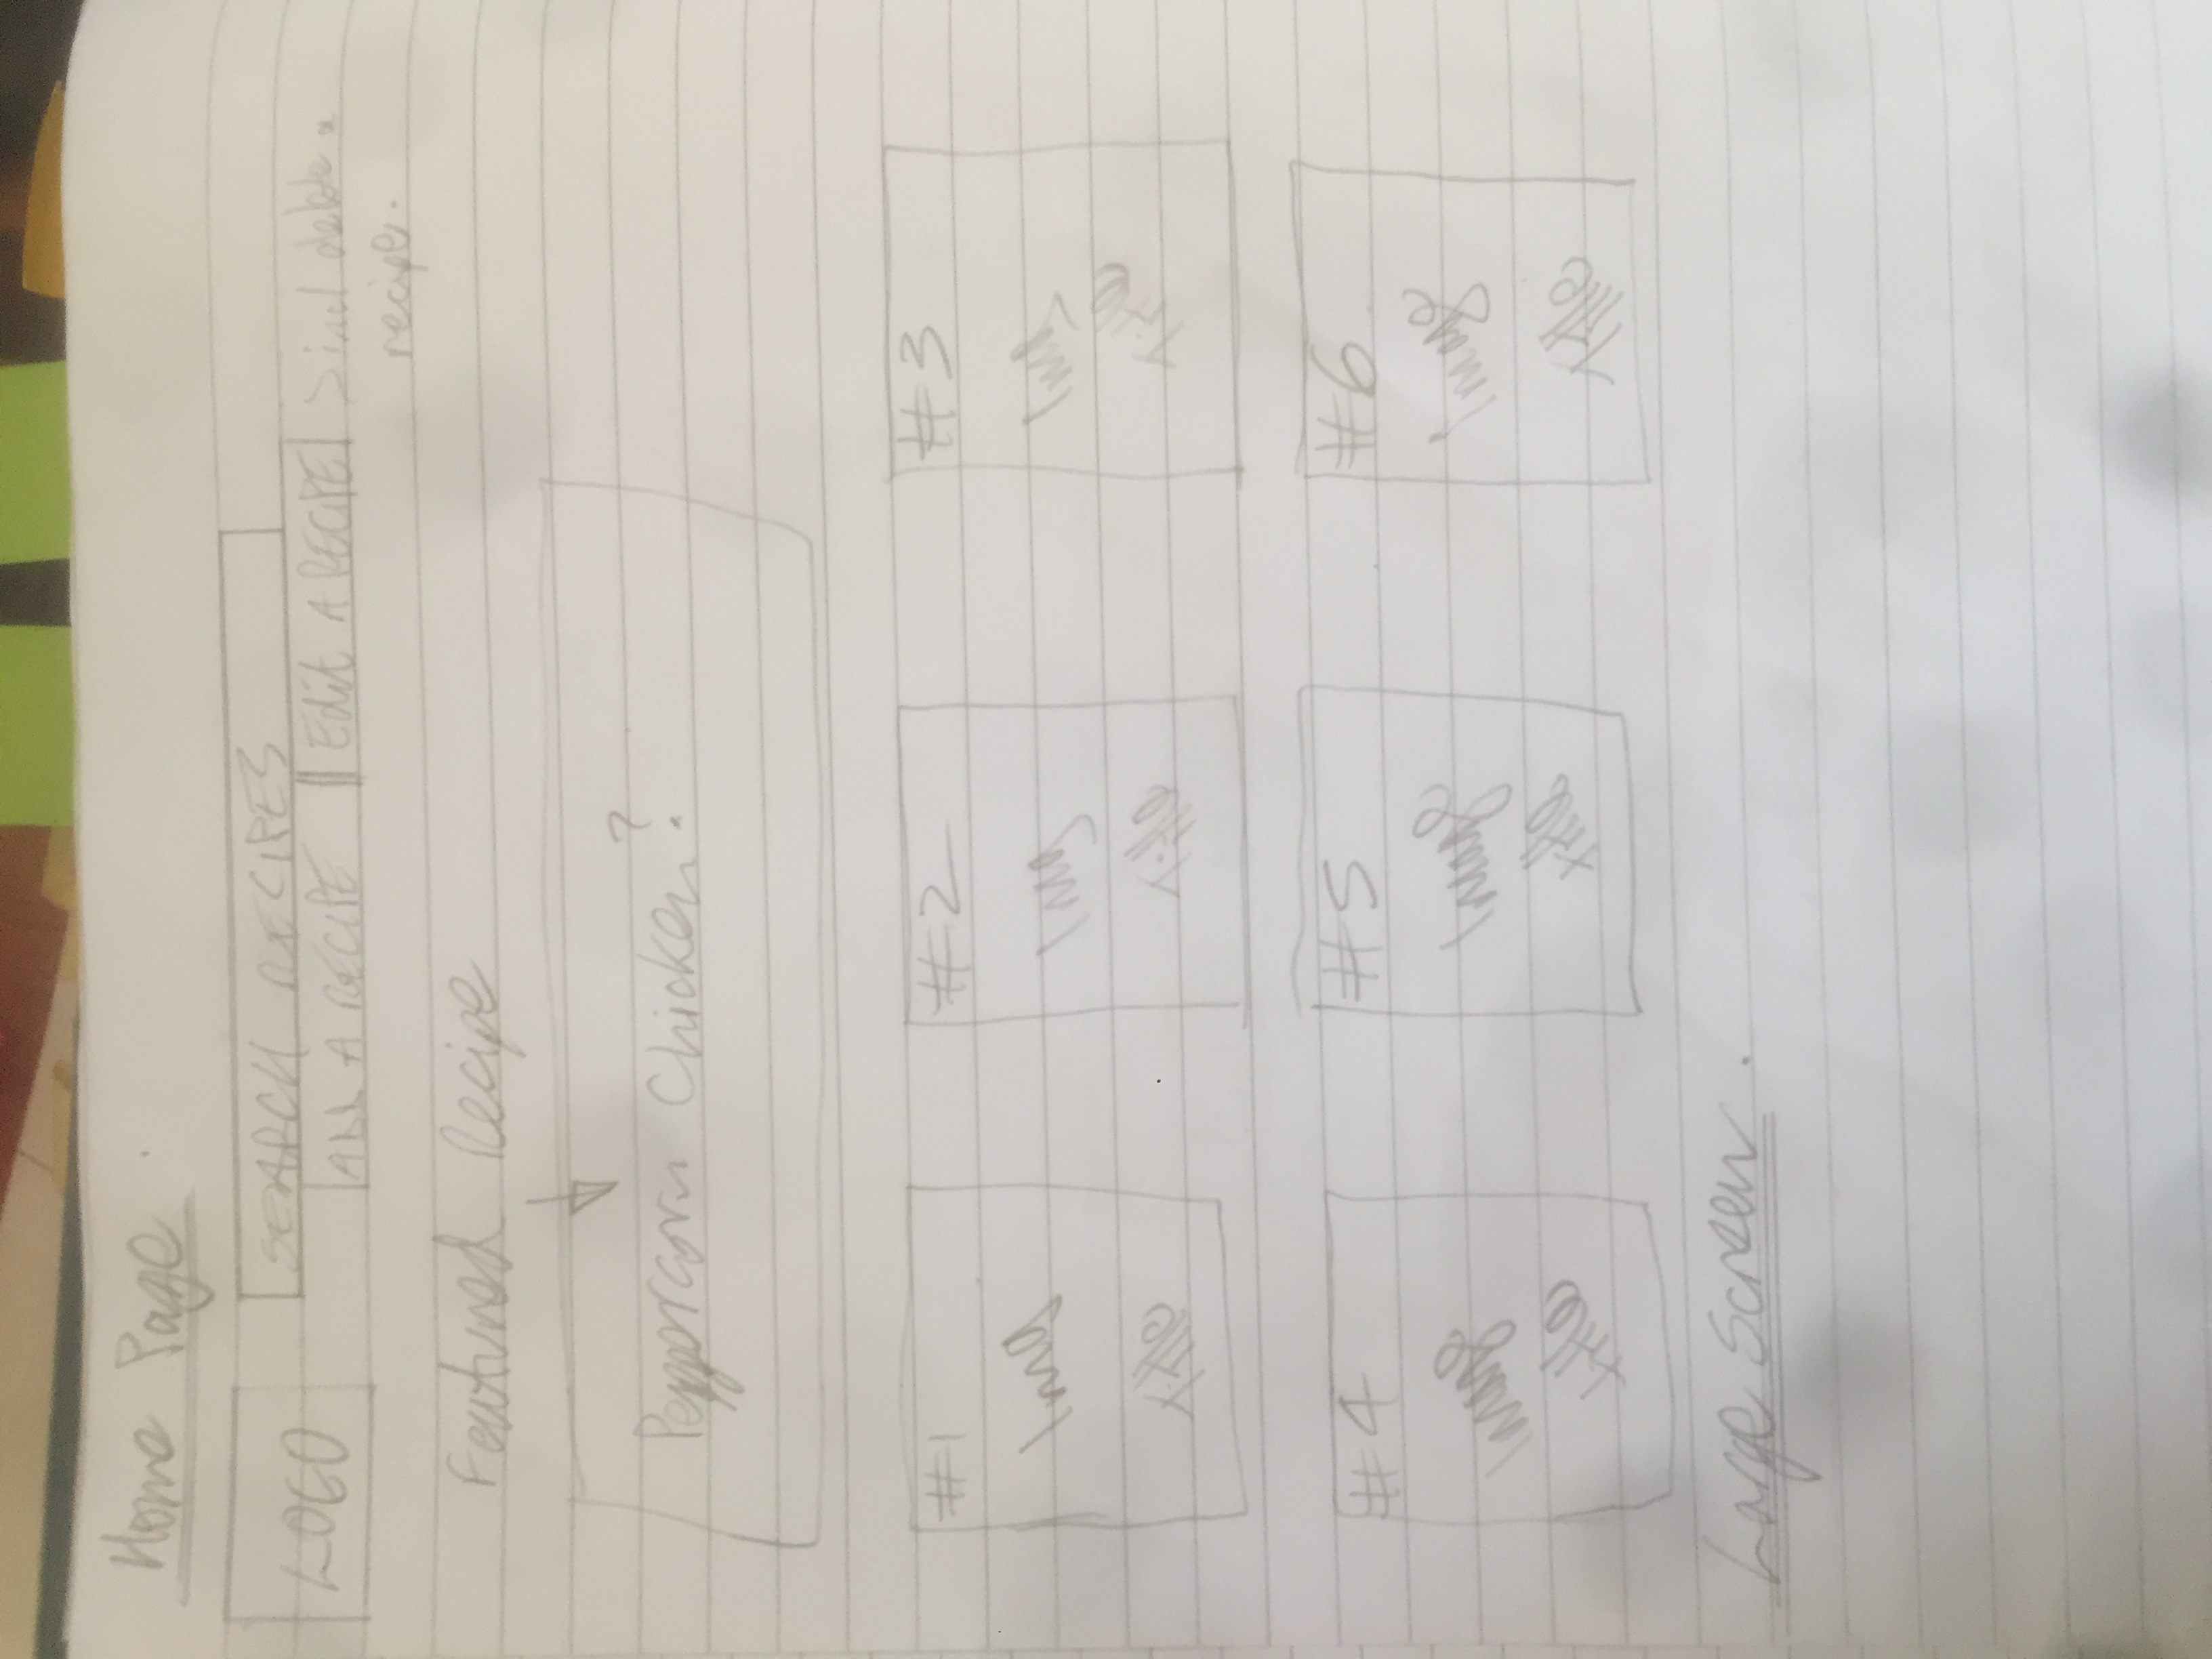 Home Page
LOGO
SEARCH RECIPES
ADD A RECIPE
Edit A RECIPE
recipe.
Featured Recipe
Chicken?
#1
#2
#3
#4
#5
#6
Large Screen.